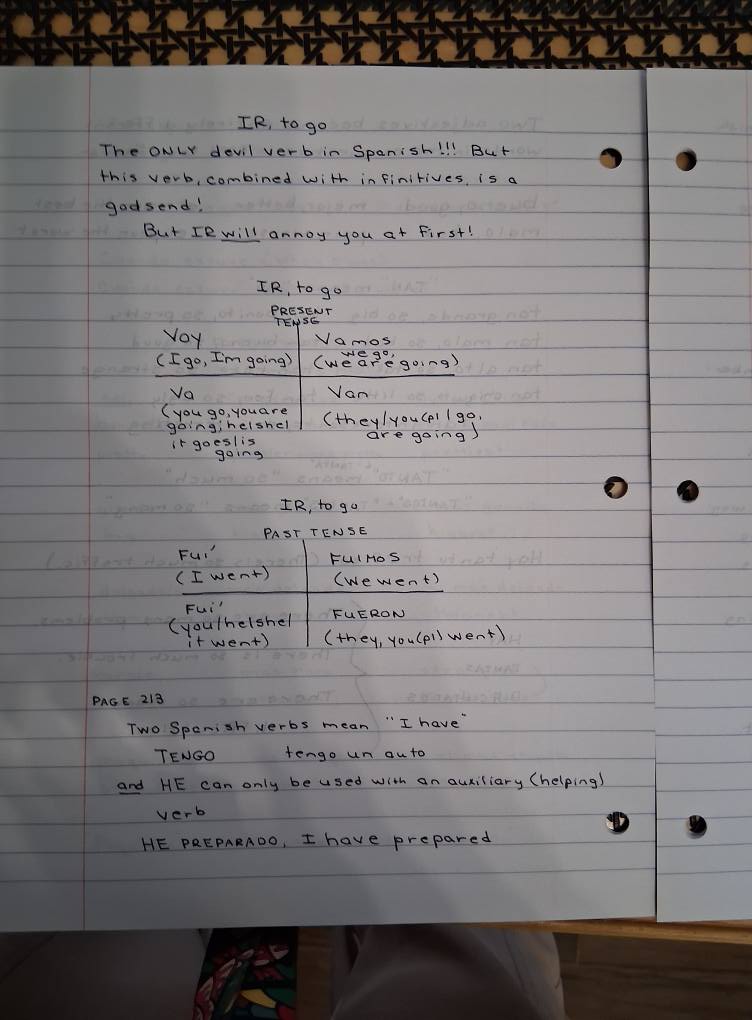 IR, to go
The ONLY devil verb in Spanish!!! But
this verb, combined with infinitives, is a
godsend!
But IR will annoy you at first!
IR, to go
PRESENT
TENSE
Voy
(I go, I'm going)
Vamos
(we go,
we are going)
Va
(you go, you are
going; he/she/
it goes/is
going
Van
(they/you(pl) go,
are going)
IR, to go
PAST TENSE
Fui'
(I went)
FUIMOS
(we went)
Fui'
(you/he/she/
it went)
FUERON
(they, you(pl) went)
PAGE 213
Two Spanish verbs mean "I have"
TENGO tengo un auto
and HE can only be used with an auxiliary (helping)
verb
HE PREPARADO, I have prepared